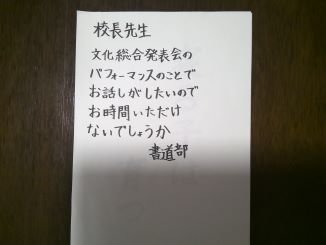 校長先生
文化総合発表会の
パフォーマンスのことで
お話しがしたいので
お時間いただけ
ないでしょうか
書道部